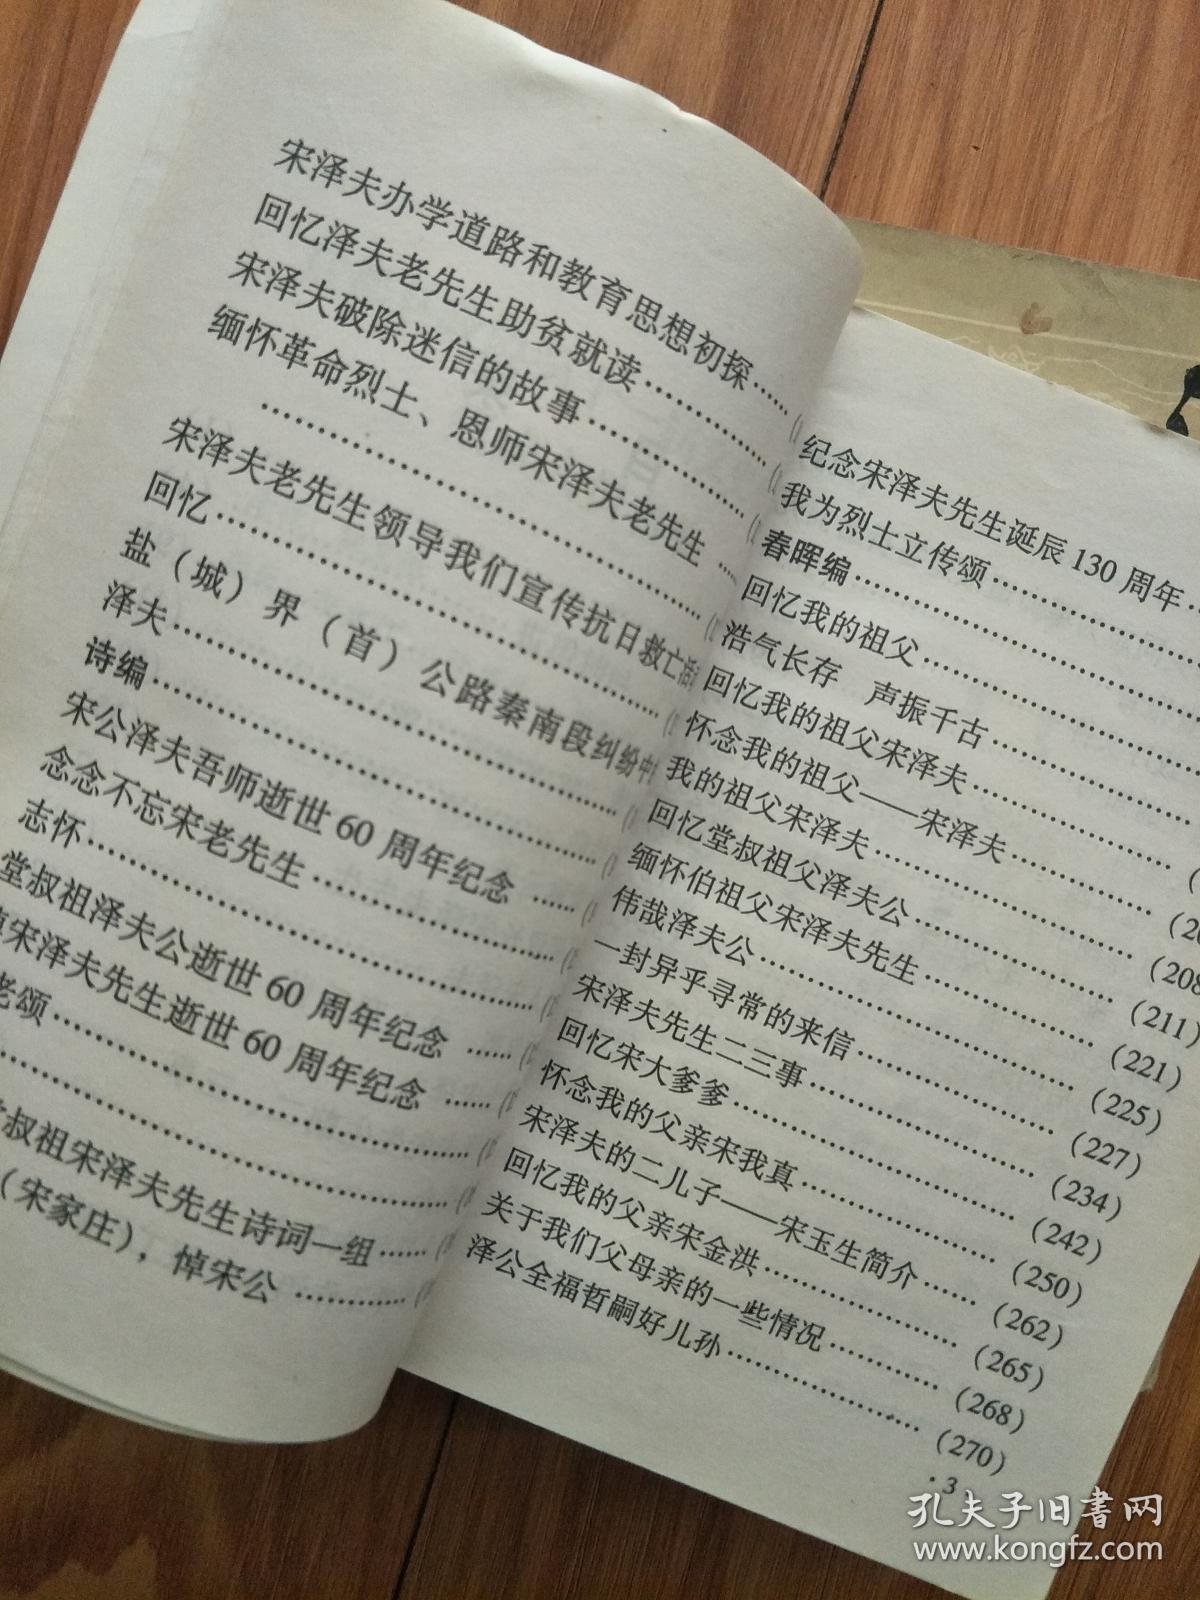 宋泽夫办学道路和教育思想初探……
回忆泽夫老先生助贫就读……
宋泽夫破除迷信的故事……
缅怀革命烈士、恩师宋泽夫老先生……
宋泽夫老先生领导我们宣传抗日救亡活
回忆……
盐（城）界（首）公路秦南段纠纷中
泽夫……
诗编……
宋公泽夫吾师逝世60周年纪念……
念念不忘宋老先生……
志怀……
堂叔祖泽夫公逝世60周年纪念……
宋泽夫先生逝世60周年纪念……
老颂……
叔祖宋泽夫先生诗词一组……
（宋家庄），悼宋公……
纪念宋泽夫先生诞辰130周年……
我为烈士立传颂……
春晖编……
回忆我的祖父……
浩气长存 声振千古……
回忆我的祖父宋泽夫……
怀念我的祖父——宋泽夫……
我的祖父宋泽夫……
回忆堂叔祖父泽夫公……(208
缅怀伯祖父宋泽夫先生……(211)
伟哉泽夫公……(221)
一封异乎寻常的来信……(225)
宋泽夫先生二三事……(227)
回忆宋大爹爹……(234)
怀念我的父亲宋我真……(242)
宋泽夫的二儿子——宋玉生简介……(250)
回忆我的父亲宋金洪……(262)
关于我们父母亲的一些情况……(265)
泽公全福哲嗣好儿孙……(268)
(270)
·3
孔夫子旧书网
www.kongfz.com